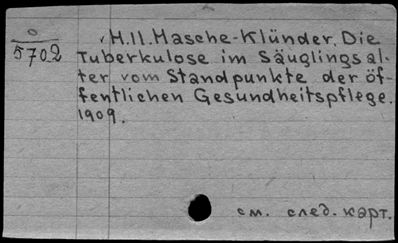 o
5702
H.11. Hasche-Klünder. Die
Tuberkulose im Säuglingsal-
ter vom Standpunkte der öf-
fentlichen Gesundheitspflege.
1909.
см. след. карт.